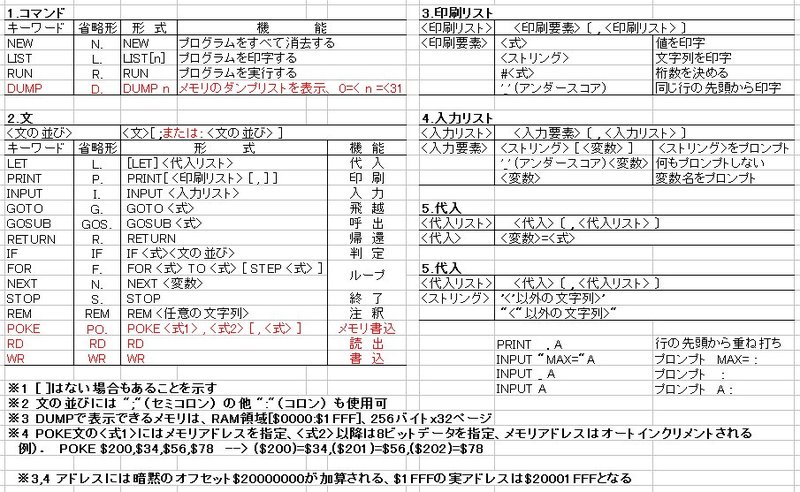 1.コマンド
キーワード 省略形 形 式 機 能
NEW N. NEW プログラムをすべて消去する
LIST L. LIST[n] プログラムを印字する
RUN R. RUN プログラムを実行する
DUMP D. DUMP n メモリのダンプリストを表示、 0=< n =<31
2.文
<文の並び> <文>[ ;または: <文の並び> ]
キーワード 省略形 形 式 機 能
LET L. [LET] <代入リスト> 代 入
PRINT P. PRINT[ <印刷リスト> [ , ] ] 印 刷
INPUT I. INPUT <入力リスト> 入 力
GOTO G. GOTO <式> 飛 越
GOSUB GOS. GOSUB <式> 呼 出
RETURN R. RETURN 帰 還
IF IF IF <式> <文の並び> 判 定
FOR F. FOR <式> TO <式> [ STEP <式> ] ループ
NEXT N. NEXT <変数>
STOP S. STOP 終 了
REM REM REM <任意の文字列> 注 釈
POKE PO. POKE <式1> , <式2> [ , <式> ] メモリ書込
RD RD RD 読 出
WR WR WR 書 込
※1 [ ]はない場合もあることを示す
※2 文の並びには “;”(セミコロン) の他 “:”(コロン) も使用可
※3 DUMPで表示できるメモリは、RAM領域[$0000:$1FFF]、256バイトx32ページ
※4 POKE文の<式1>にはメモリアドレスを指定、<式2>以降は8ビットデータを指定、メモリアドレスはオートインクリメントされる
例). POKE $200,$34,$56,$78 --> ($200)=$34,($201)=$56,($202)=$78
※3,4 アドレスには暗黙のオフセット$20000000が加算される、$1FFFの実アドレスは$20001FFFとなる
3.印刷リスト
<印刷リスト> <印刷要素> [ , <印刷リスト> ]
<印刷要素> <式> 値を印字
<ストリング> 文字列を印字
#<式> 桁数を決める
'_' (アンダースコア) 同じ行の先頭から印字
4.入力リスト
<入力リスト> <入力要素> [ , <入力リスト> ]
<入力要素> <ストリング> [ <変数> ] <ストリング>をプロンプト
'_' (アンダースコア) <変数> 何もプロンプトしない
<変数> 変数名をプロンプト
5.代入
<代入リスト> <代入> [ , <代入リスト> ]
<代入> <変数>=<式>
5.代入
<代入リスト> <代入> [ , <代入リスト> ]
<ストリング> '<'以外の文字列>'
“<“以外の文字列>“
PRINT _ A 行の先頭から重ね打ち
INPUT “MAX=“ A プロンプト MAX= :
INPUT _ A プロンプト :
INPUT A プロンプト A :